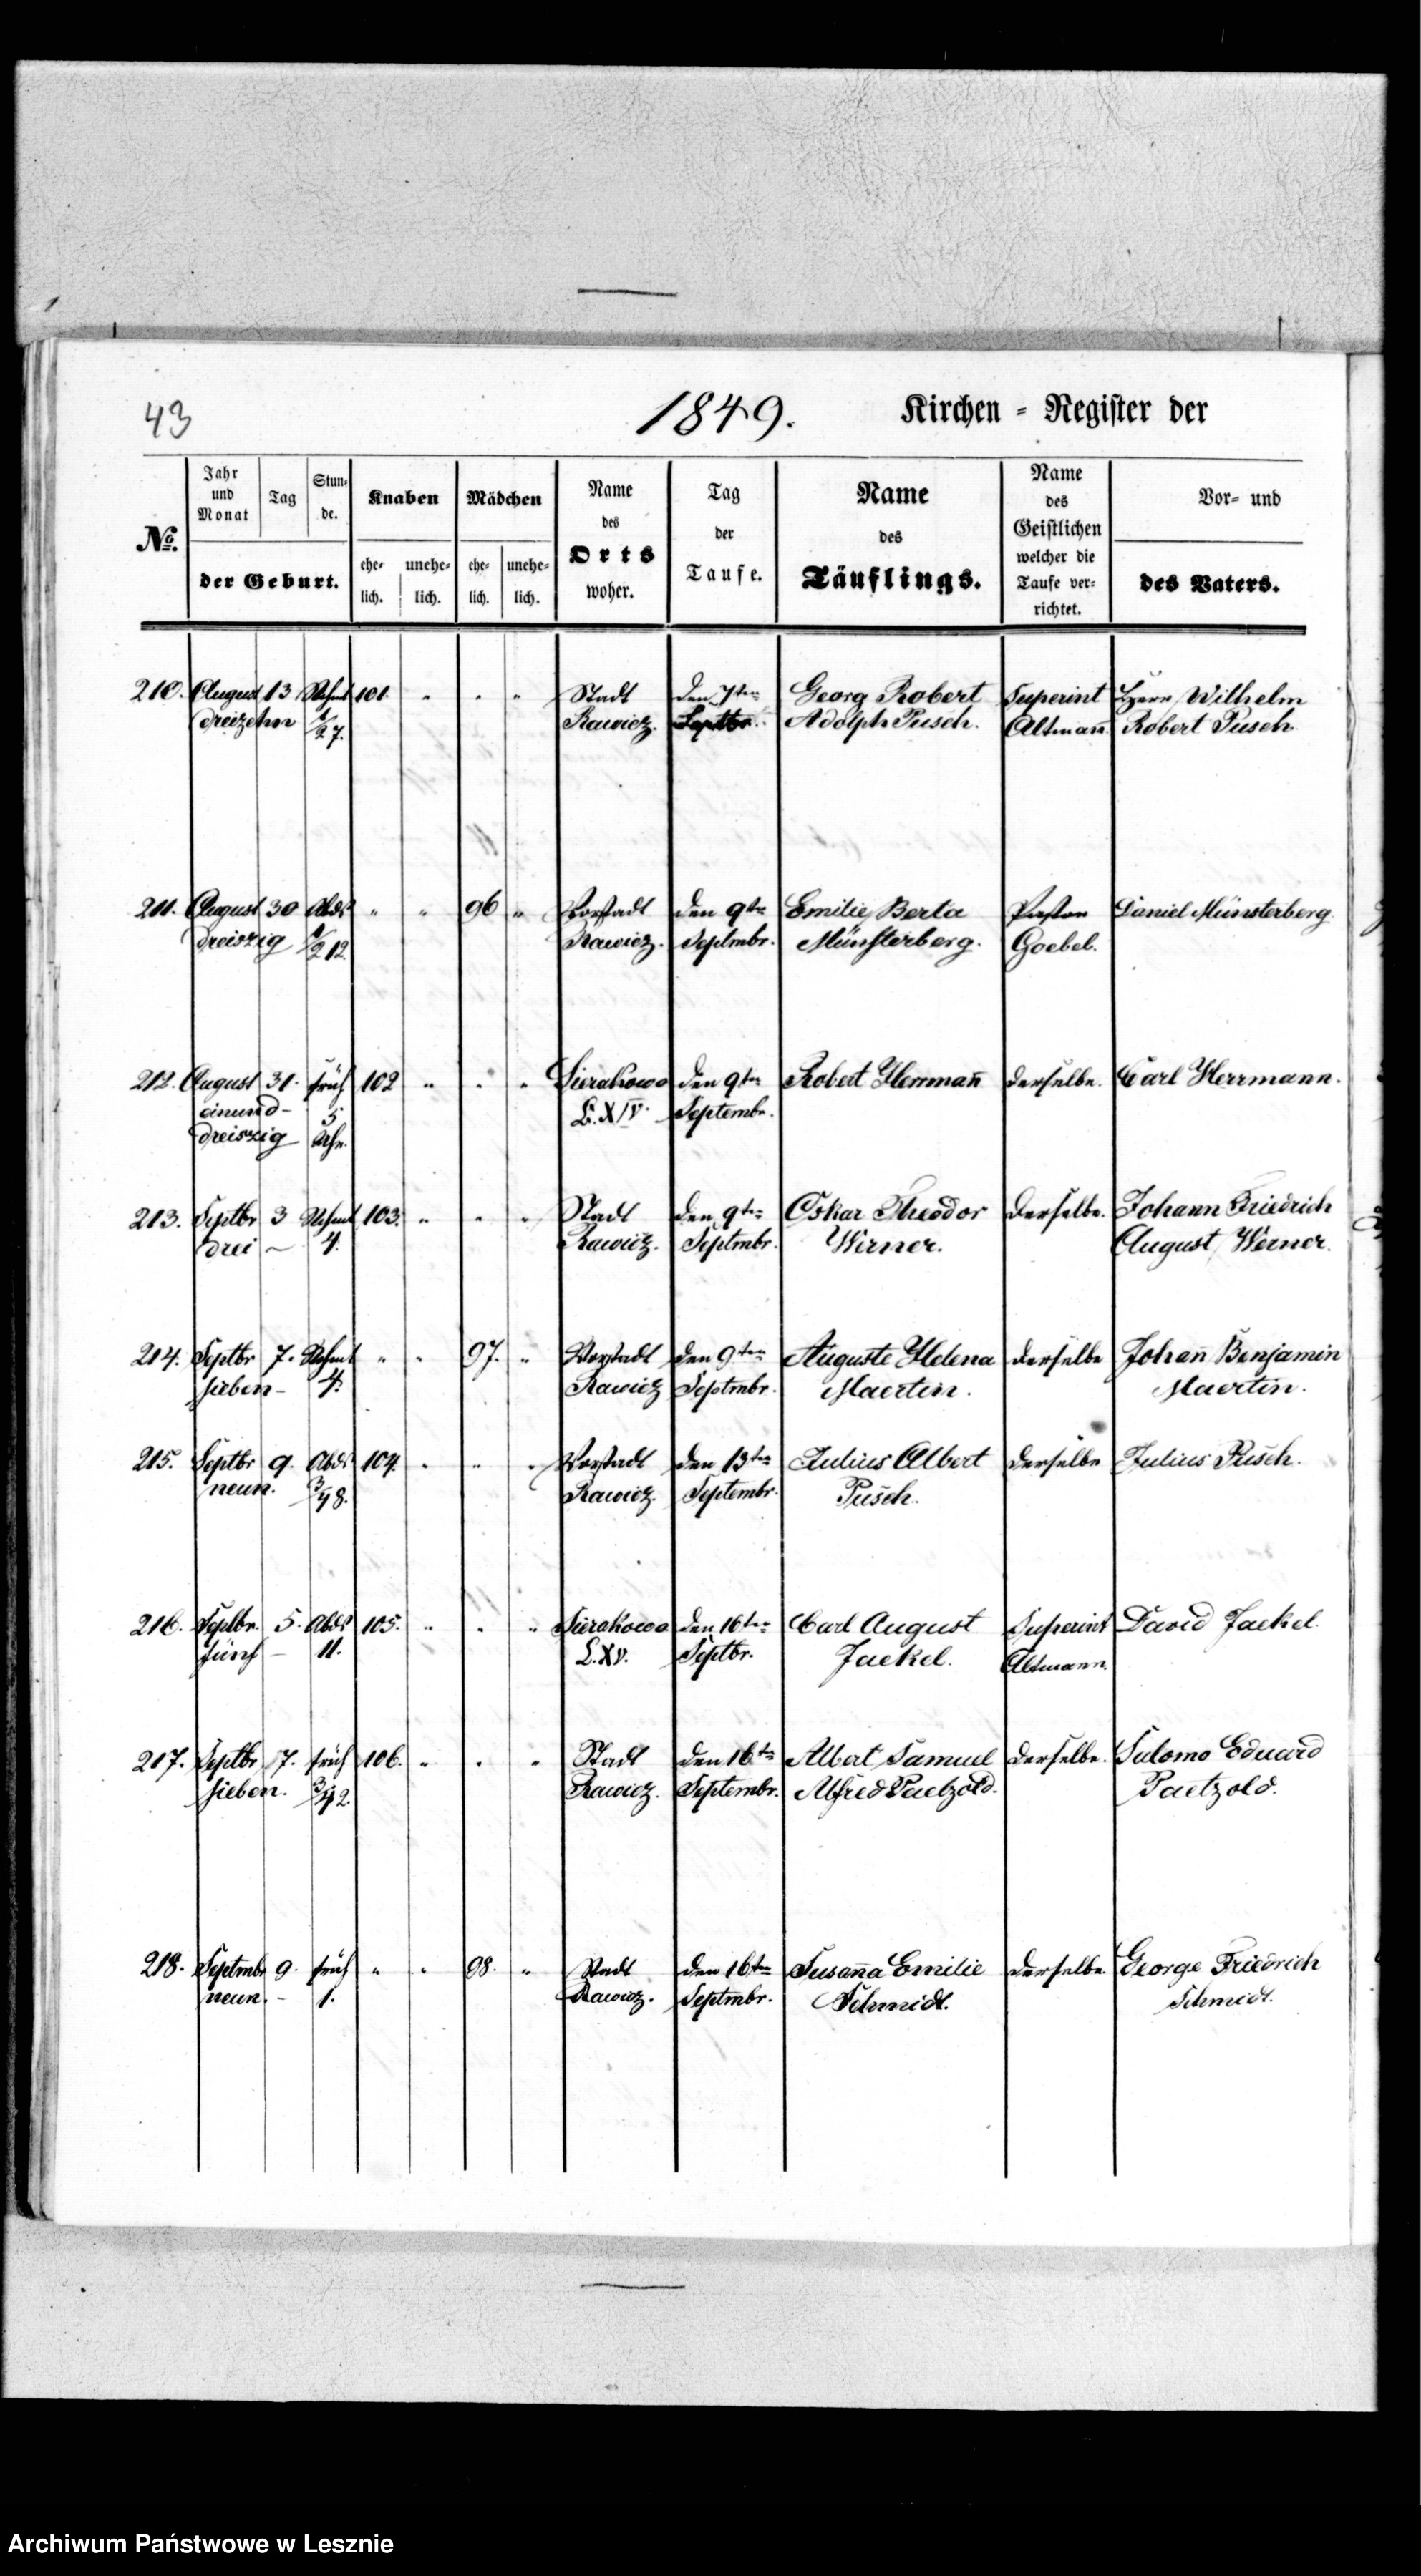 43 1849. Kirchen = Register der
No. Jahr und Monat Tag Stun- de. Knaben Mädchen Name des Orts woher. Tag der Taufe. Name des Täuflings. Name des Geistlichen welcher die Taufe ver- richtet. Vor- und
der Geburt. ehe- lich. unehe- lich. ehe- lich. unehe- lich. des Vaters.
210. August 13 Nchmt 101. " " " Stadt den 7ten Georg Robert Superint Herr Wilhelm
dreizehn 1/2 7. Rawicz. Septbr. Adolph Pusch. Altmann. Robert Pusch
211. August 30 Abds " " 96 " Vorstadt den 9ten Emilie Berta Pastor Daniel Münsterberg
dreiszig 1/2 12. Rawicz. Septmbr. Münsterberg. Goebel.
212. August 31. früh 102 " " " Sierakowo den 9ten Robert Herrmañ derselbe. Carl Herrmann.
einund- 5 L. XIV. Septembr.
dreiszig Uhr.
213. Septbr 3 Nchmt 103. " " " Stadt den 9ten Oskar Theodor derselbe. Johann Friedrich
drei - 4. Rawicz. Septmbr. Werner. August Werner.
214. Septbr 7. Nchmt " " 97. " Vorstadt den 9ten Auguste Helena derselbe Johañ Benjamin
sieben - 4. Rawicz Septmbr. Maertin. Maertin.
215. Septbr 9. Abds 104. " " " Vorstadt den 13ten Julius Albert derselbe Julius Pusch.
neun. 3/4 8. Rawicz. Septembr. Pusch.
216. Septbr. 5. Abds 105. " " " Sierakowo den 16ten Carl August Superint David Jaekel.
fünf - 11. L. XV. Septbr. Jaekel. Altmann.
217. Septbr 7. früh 106. " " " Stadt den 16ten Albert Samuel derselbe. Salomo Eduard
sieben. 3/4 2. Rawicz. Septembr. Alfred Paetzold. Paetzold.
218. Septmbr 9. früh " " 98. " Stadt den 16ten Susaña Emilie derselbe. George Friedrich
neun. - 1. Rawicz. Septmbr. Schmidt. Schmidt.
Archiwum Państwowe w Lesznie